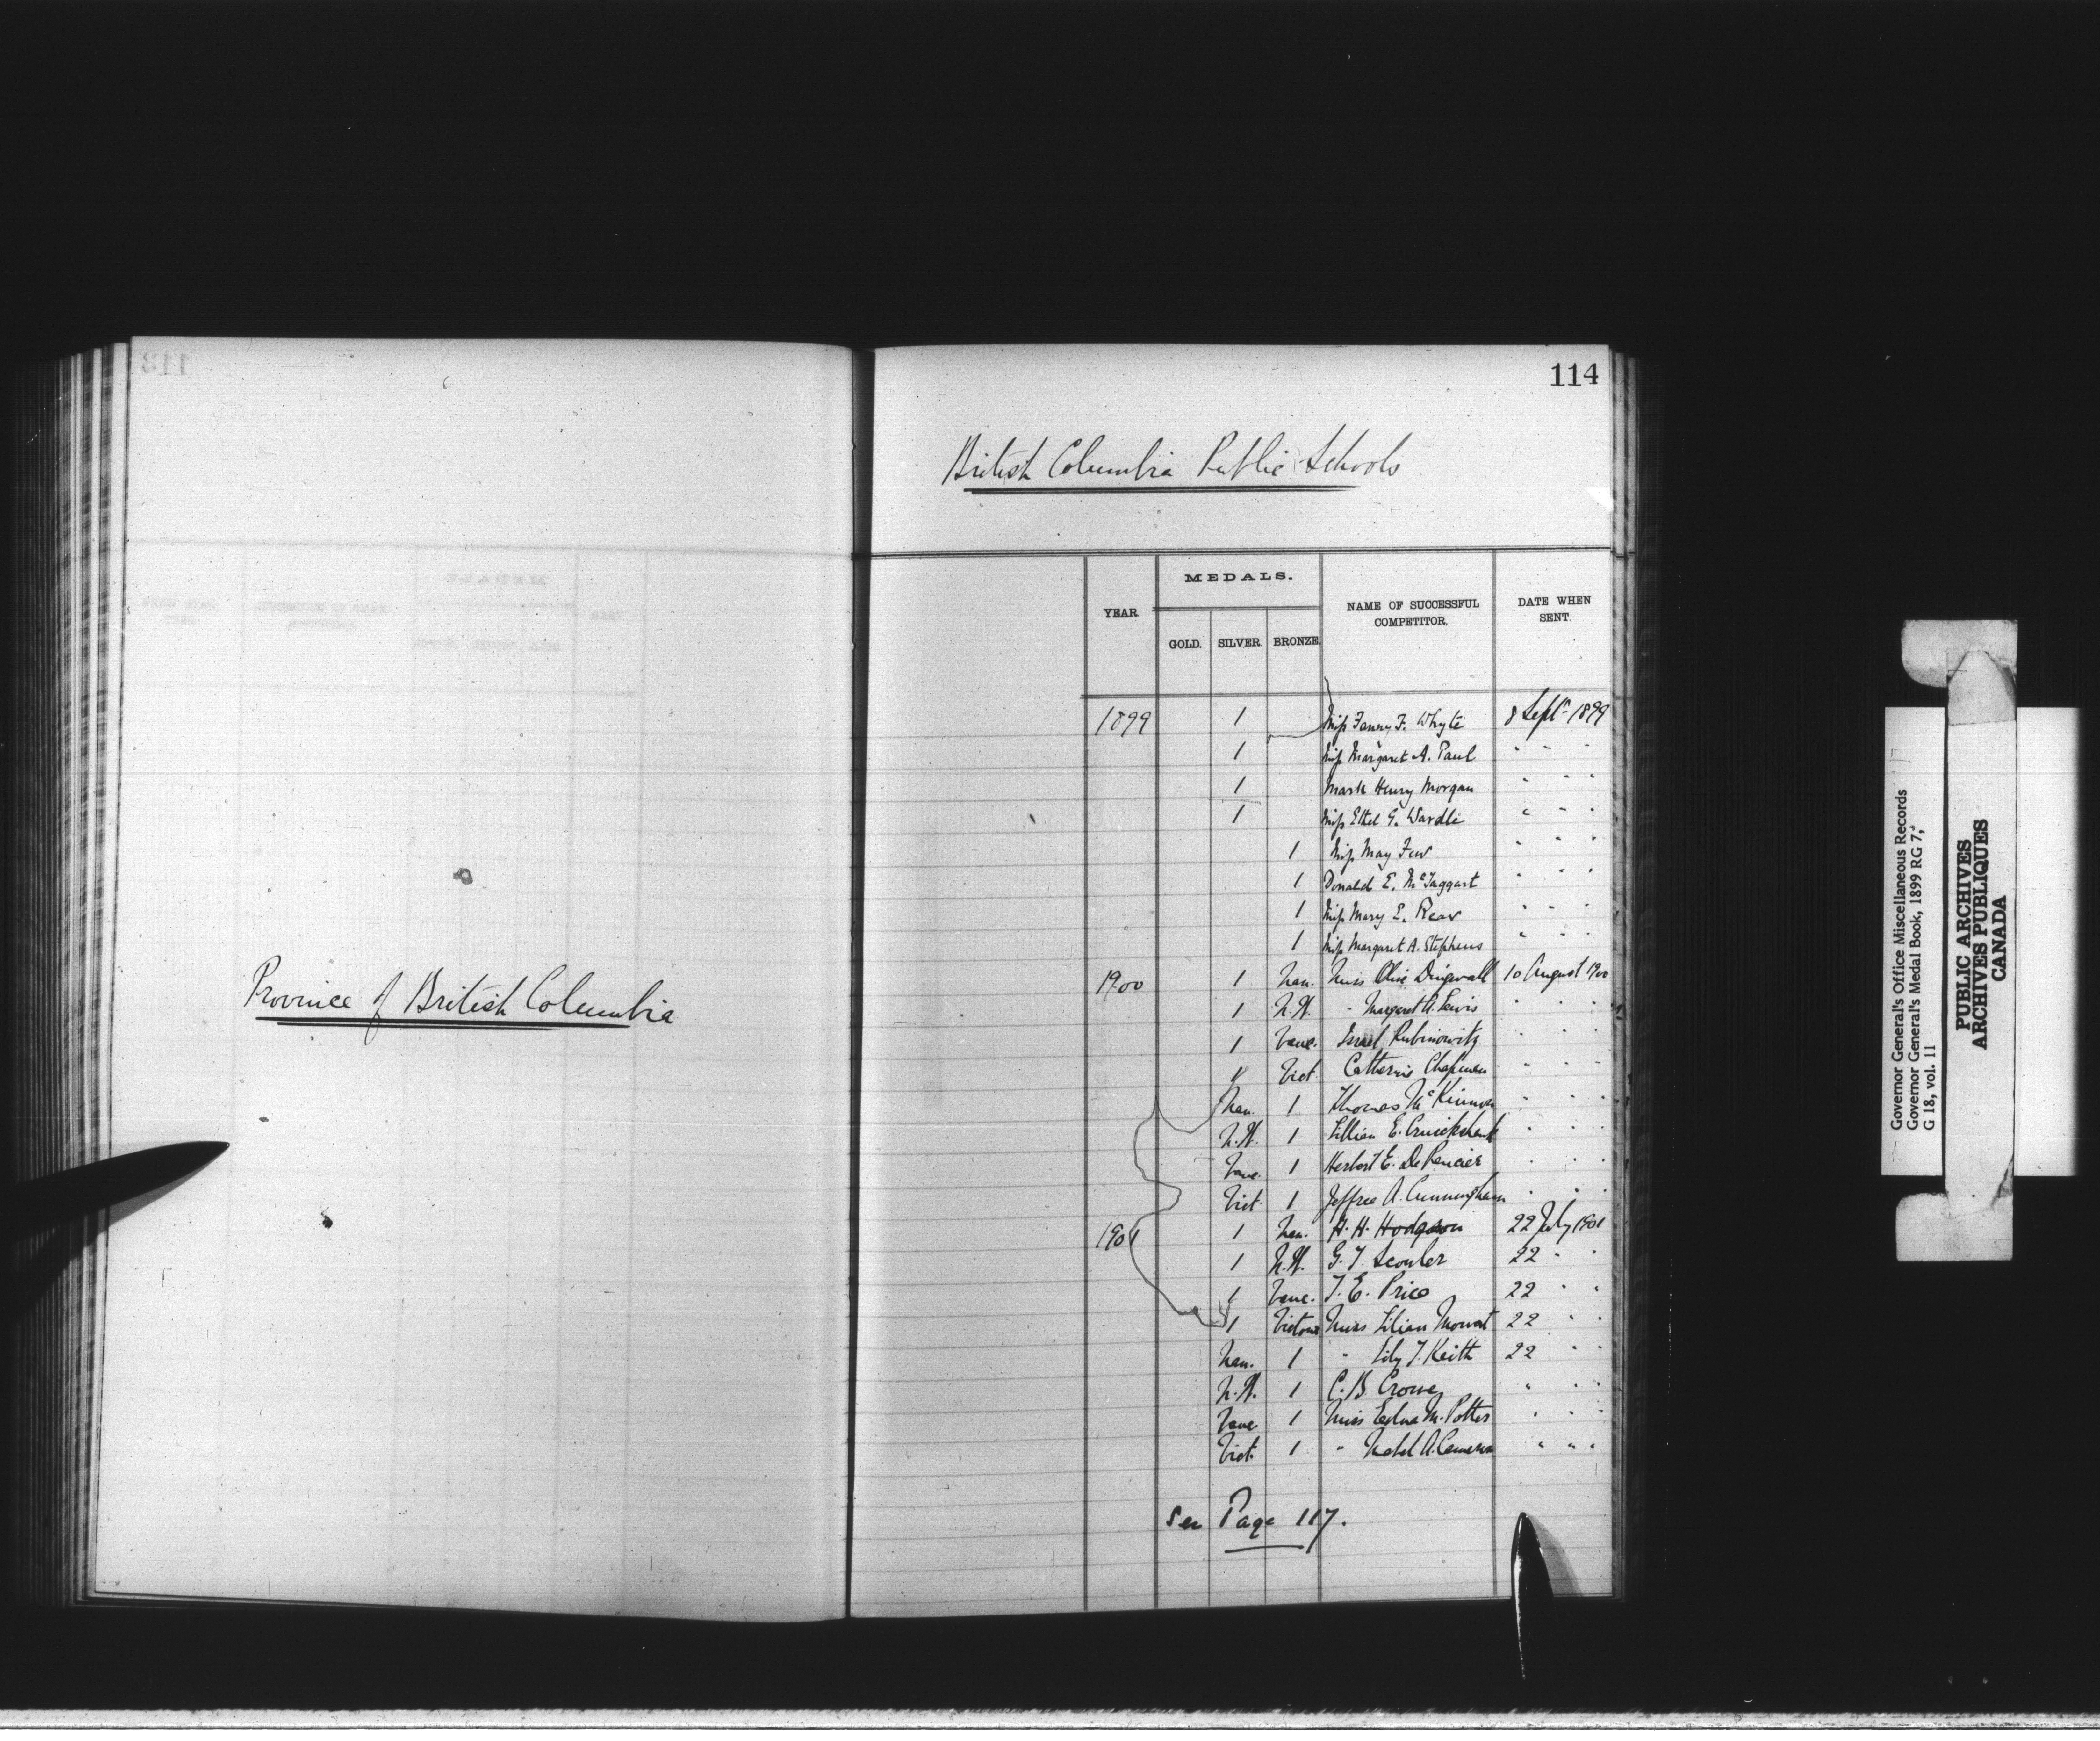 113
Province of British Columbia
114
British Columbia Public Schools
YEAR MEDALS. NAME OF SUCCESSFUL COMPETITOR. DATE WHEN SENT.
GOLD. SILVER. BRONZE.
1899 1 Miss Fanny F. Whyte 8 Sept. 1899
1 Miss Margaret A. Paul " " "
1 Mark Henry Morgan " " "
1 Miss Ethel G. Wardle " " "
1 Miss May Few " " "
1 Donald E. McTaggart " " "
1 Miss Mary E. Rear " " "
1 Miss Margaret A. Stephens " " "
1900 1 Nan. Miss Olive Dingwall 10 August 1900
1 N.W. " Margaret A. Lewis " " "
1 Vanc. Israel Rubinowitz " " "
1 Vict. Catherine Chapman " " "
Nan. 1 Thomas McKinnon " " "
N.W. 1 Lillian E. Cruickshank " " "
Vanc. 1 Herbert E. DePencier " " "
Vict. 1 Jeffree A. Cunningham " " "
1901 1 Nan. H. H. Hodgson 22 July 1901
1 N.W. G. T. Scouler 22 " "
1 Vanc. T. E. Price 22 " "
1 Victoria Miss Lilian Mowat 22 " "
Nan. 1 " Lily T. Keith 22 " "
N.W. 1 C. B. Crowe " " "
Vanc. 1 Miss Edna M. Potter " " "
Vict. 1 " Mabel A. Cameron " " "
See Page 117.
Governor General's Office Miscellaneous Records
Governor General's Medal Book, 1899 RG 7,
G 18, vol. 11
PUBLIC ARCHIVES
ARCHIVES PUBLIQUES
CANADA